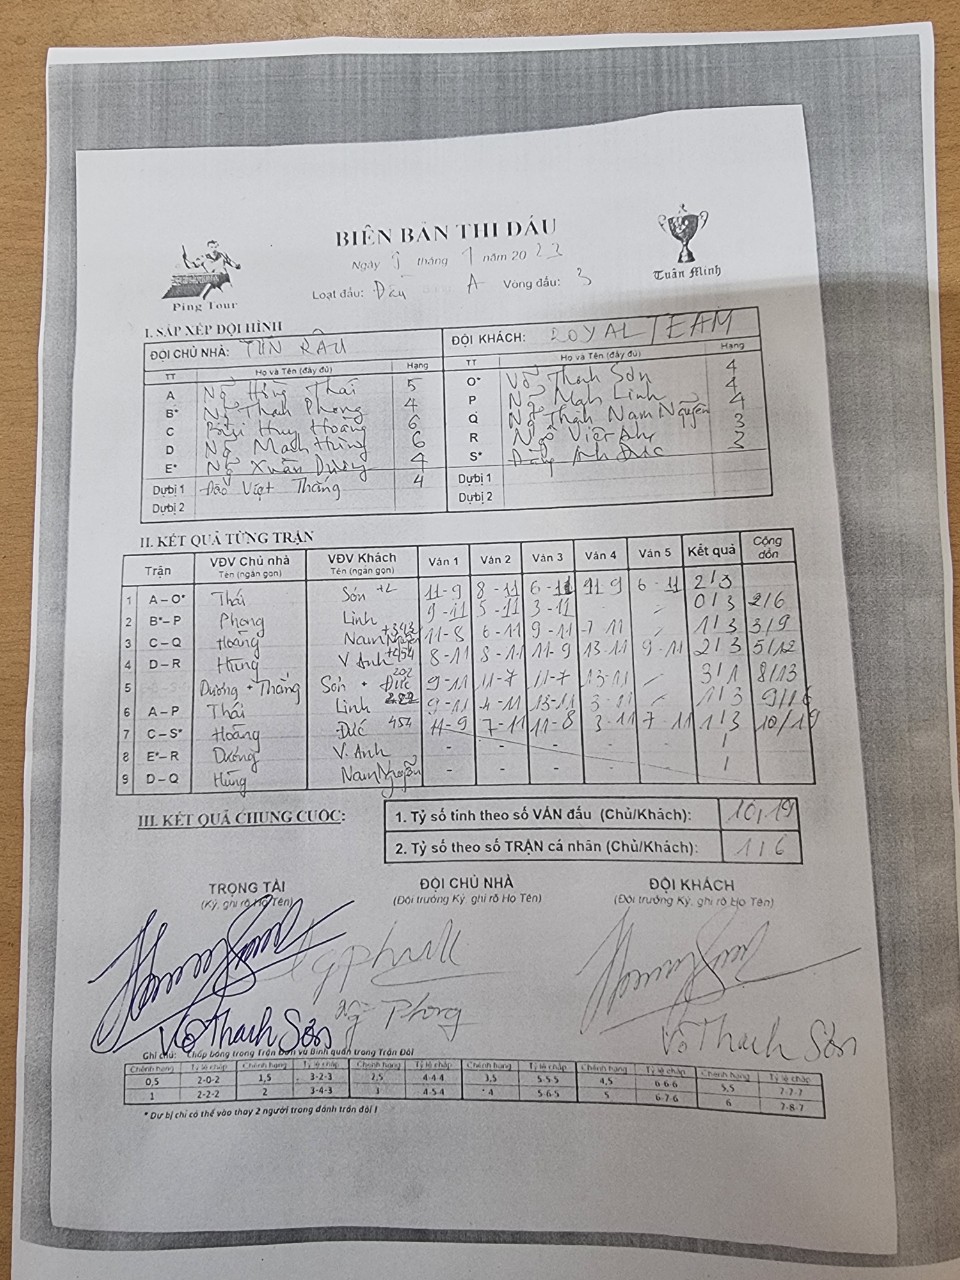 BIÊN BẢN THI ĐẤU
Ngày 9 tháng 7 năm 2023
Loạt đấu: Đấu A Vòng đấu: 3
Ping Tour
Tuấn Minh
I. SẮP XẾP ĐỘI HÌNH
ĐỘI CHỦ NHÀ: TUN RÂU ĐỘI KHÁCH: ROYAL TEAM
TT Họ và Tên (đầy đủ) Hạng TT Họ và Tên (đầy đủ) Hạng
A Ng Hồng Thái 5 O* Võ Thạch Sơn 4
B* Ng Thanh Phong 4 P Ng Mạnh Linh 4
C Bùi Huy Hoàng 6 Q Ng Thành Nam Nguyên 4
D Ng Mạnh Hùng 6 R Ngô Việt Anh 3
E* Ng Xuân Dương 4 S* Đặng Anh Đức
Dự bị 1 Đào Việt Thắng 4 Dự bị 1
Dự bị 2 Dự bị 2
II. KẾT QUẢ TỪNG TRẬN
Trận VĐV Chủ nhà Tên (ngắn gọn) VĐV Khách Tên (ngắn gọn) Ván 1 Ván 2 Ván 3 Ván 4 Ván 5 Kết quả Cộng dồn
1 A – O* Thái Sơn +2 11-9 8-11 6-11 11-9 6-11 2/3
2 B* – P Phong Linh 9-11 5-11 3-11 - - 0/3 2/6
3 C – Q Hoàng Nam Nguyên +343 11-8 6-11 9-11 7-11 - 1/3 3/9
4 D – R Hùng V Anh +454 8-11 8-11 11-9 13-11 9-11 2/3 5/12
5 Dương + Thắng Sơn + Đức 202 9-11 11-7 11-7 13-11 - 3/1 8/13
6 A – P Thái Linh 222 9-11 4-11 13-11 3-11 - 1/3 9/16
7 C – S* Hoàng Đức 454 11-9 7-11 11-8 3-11 7-11 1/3 10/19
8 E* – R Dương V. Anh - - - - - /
9 D – Q Hùng Nam Nguyên - - - - - /
III. KẾT QUẢ CHUNG CUỘC:
1. Tỷ số tính theo số VÁN đấu (Chủ/Khách): 10/19
2. Tỷ số theo số TRẬN cá nhân (Chủ/Khách): 1/6
TRỌNG TÀI ĐỘI CHỦ NHÀ ĐỘI KHÁCH
(Ký, ghi rõ Họ Tên) (Đội trưởng Ký, ghi rõ Họ Tên) (Đội trưởng Ký, ghi rõ Họ Tên)
Võ Thạch Sơn Ng Phong Võ Thạch Sơn
Ghi chú: Chấp bóng trong Trận Đơn và Bình quân trong Trận Đôi
Chênh hạng Tỷ lệ chấp Chênh hạng Tỷ lệ chấp Chênh hạng Tỷ lệ chấp Chênh hạng Tỷ lệ chấp Chênh hạng Tỷ lệ chấp Chênh hạng Tỷ lệ chấp
0,5 2-0-2 1,5 3-2-3 2,5 4-4-4 3,5 5-5-5 4,5 6-6-6 5,5 7-7-7
1 2-2-2 2 3-4-3 3 4-5-4 4 5-6-5 5 6-7-6 6 7-8-7
* Dự bị chỉ có thể vào thay 2 người trong đánh trận đôi !